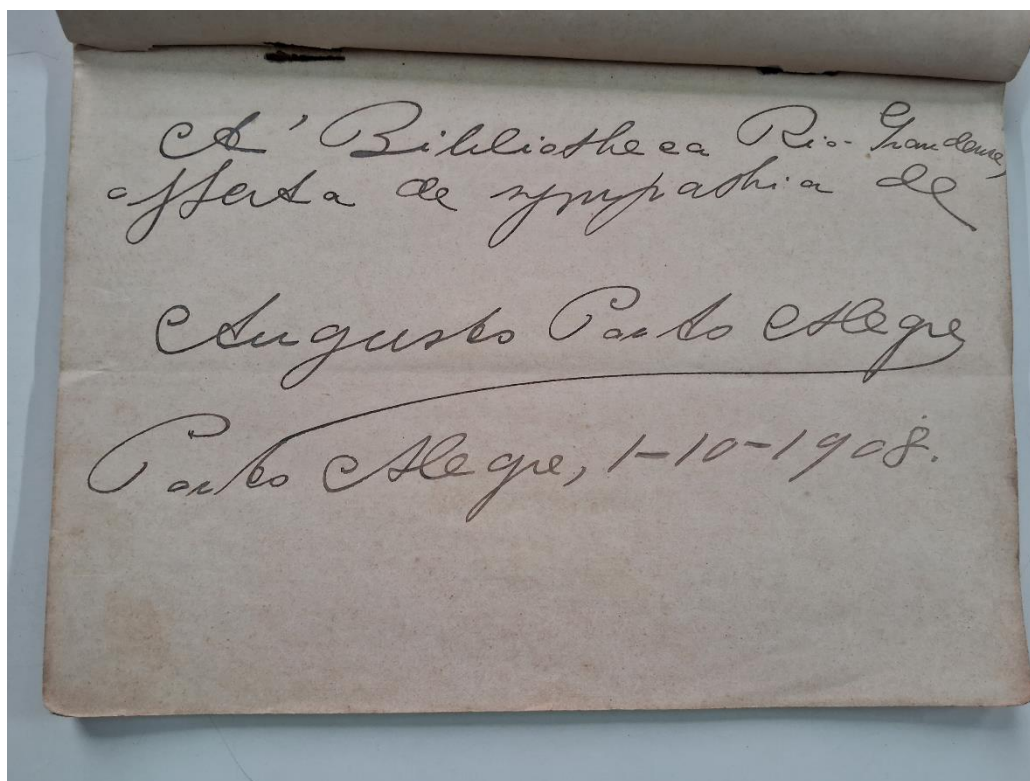 A' Bibliotheca Rio-Grandense,
offerta de sympathia de
Augusto Porto Alegre
Porto Alegre, 1-10-1908.